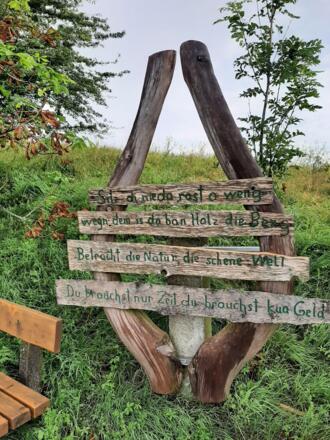 Sitz di nieda rast a wenig
wegn dem is do ban Holz die Beng
Betracht die Natur, die schene Well
Du brauchst nur Zeit du brauchst kua Geld